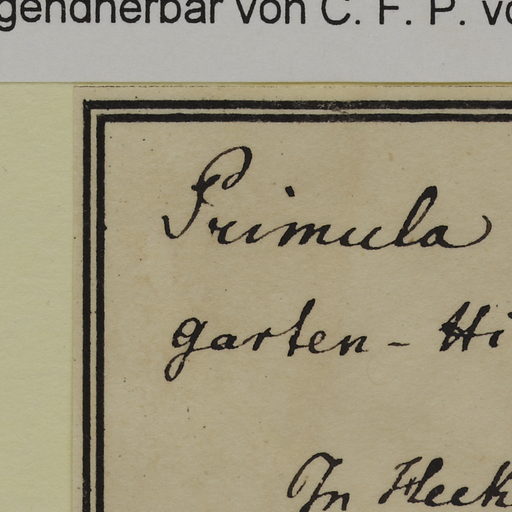 gendherbar von C. F. P. v
Primula
garten - Hi
In Heck